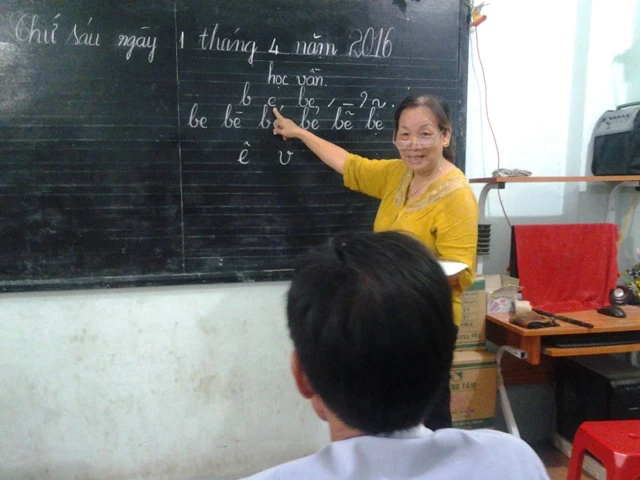 Thứ sáu ngày 1 tháng 4 năm 2016
học vần.
b e be
be bè bé bẻ bẽ bẹ
ê v